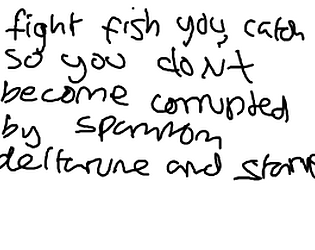 fight fish you catch
so you don't
become corrupted
by spamton
deltarune and